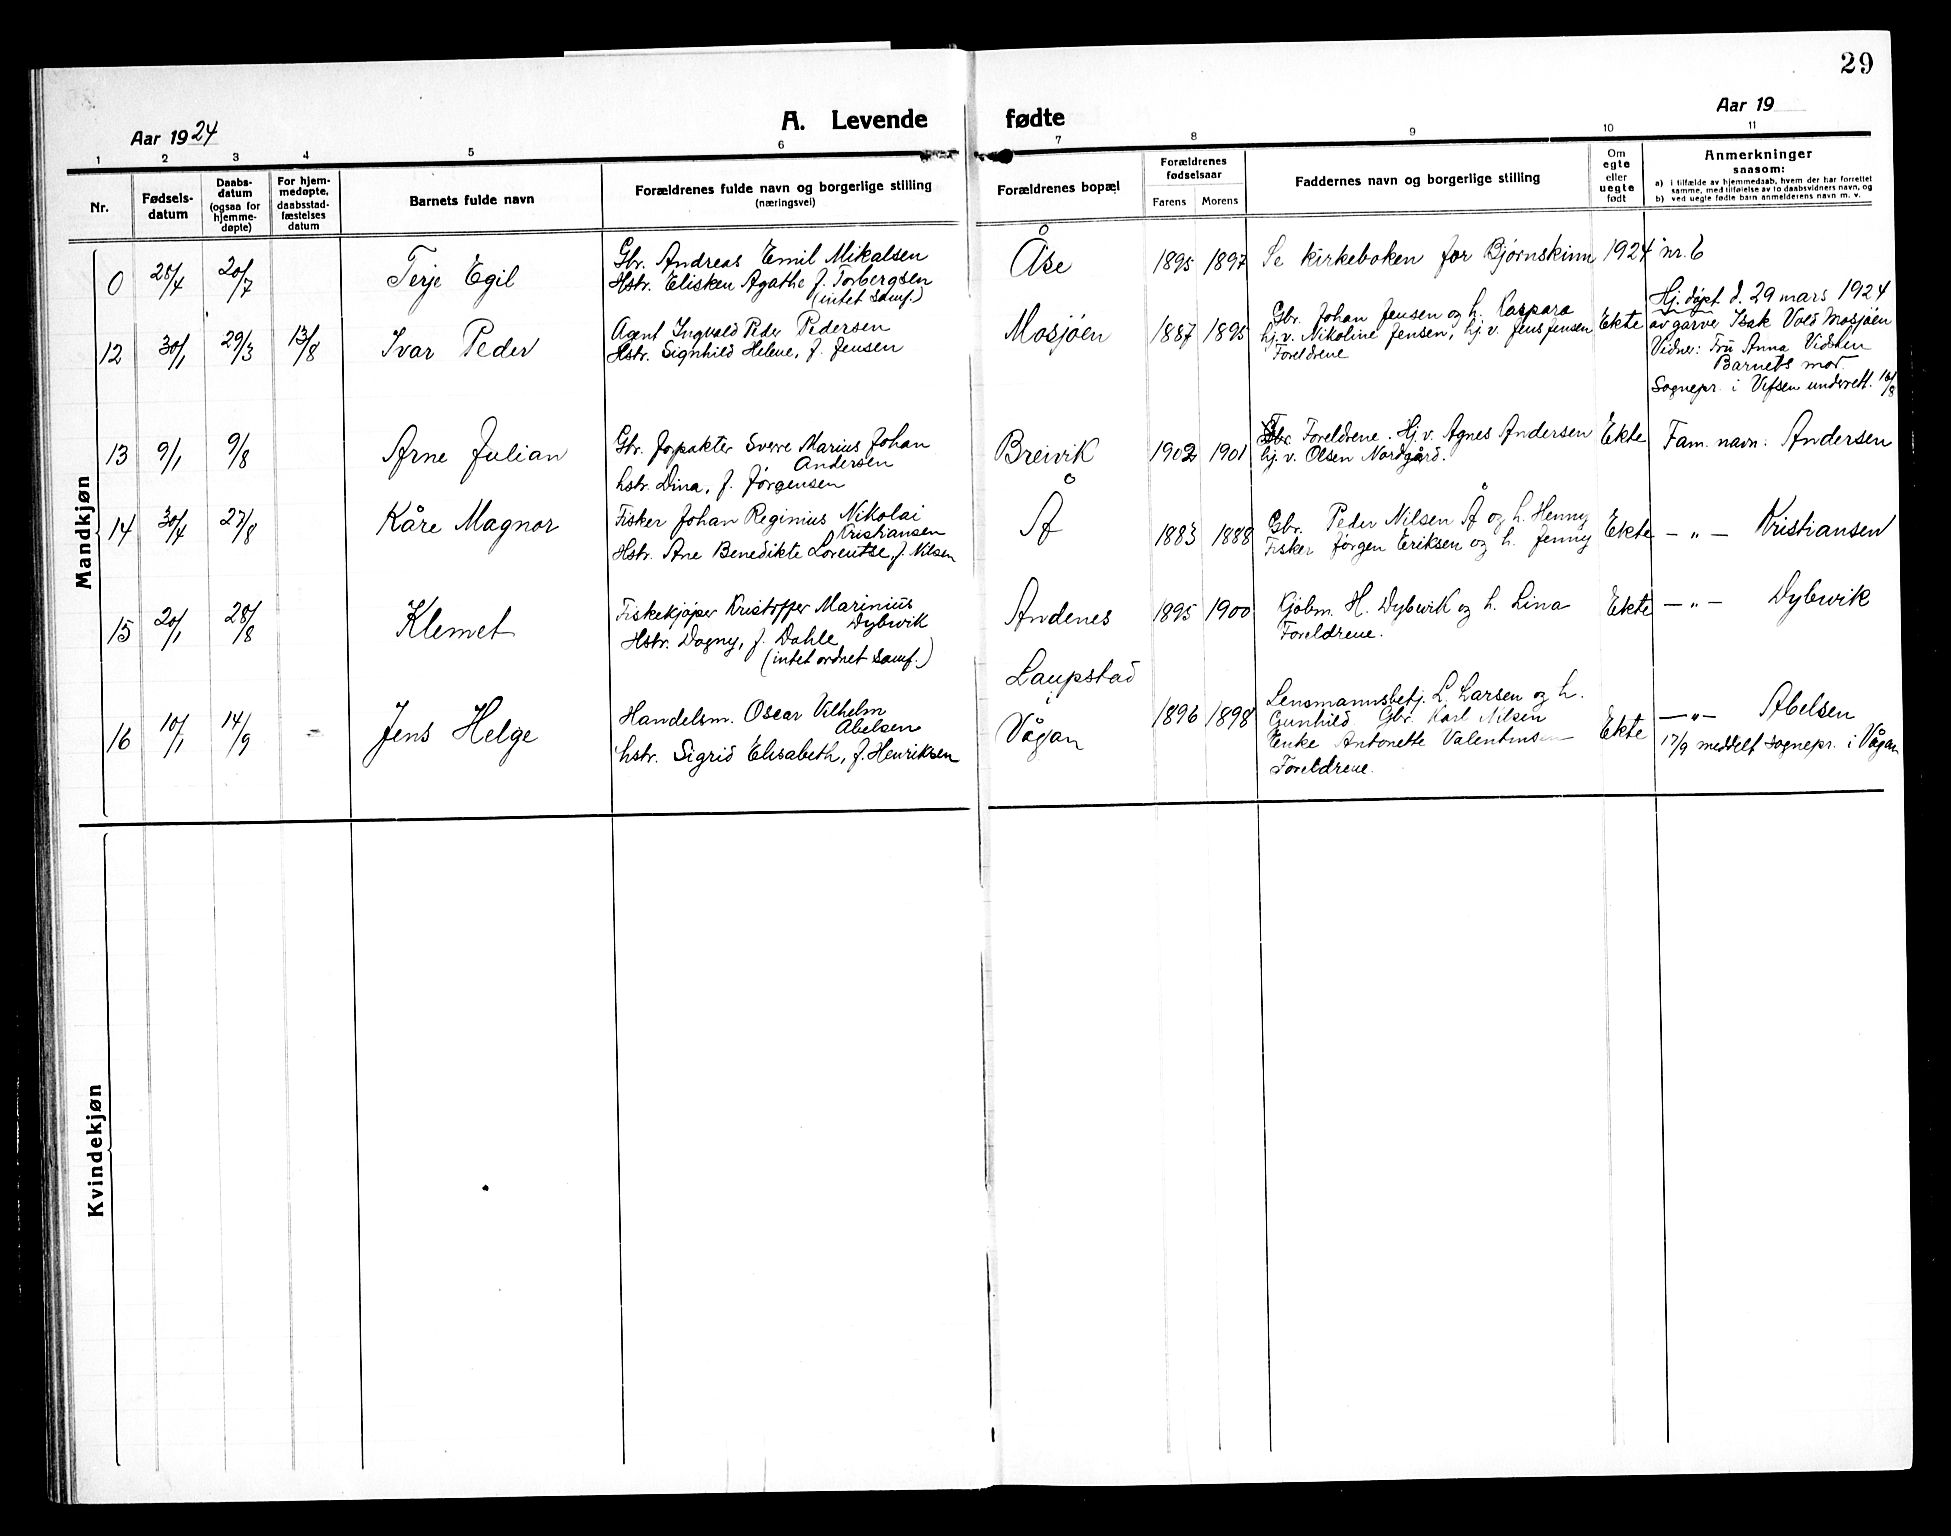 29
Aar 1924
A. Levende fødte
Aar 19
1 2 3 4 5 6 7 8 9 10 11
Nr.
Fødsels-
datum
Daabs-
datum
(ogsaa for
hjemme-
døpte)
For hjem-
medøpte,
daabsstad-
fæstelses
datum
Barnets fulde navn
Forældrenes fulde navn og borgerlige stilling
(næringsvei)
Forældrenes bopæl
Forældrenes
fødselsaar
Farens Morens
Faddernes navn og borgerlige stilling
Om
egte
eller
uegte
født
Anmerkninger
saasom:
a) i tilfælde av hjemmedaab, hvem der har forrettet
samme, med tilføielse av to daabsvidners navn, og
b) ved uegte fødte barn anmelderens navn m. v.
Mandkjøn
0 28/4 20/7 Terje Egil
Gbr. Andreas Emil Mikalsen
Hstr. Elisken Agathe f. Torbergsen
(intet samf.)
Åse 1895 1897 Se kirkeboken for Bjørnskinn 1924 nr. 6
12 30/1 29/3 13/8 Ivar Peder
Agent Ingvald Peder Pedersen
Hstr. Signhild Helene, f. Jensen
Mosjøen 1887 1895
Gbr. Johan Jensen og h. Kaspara
hj. v. Nikoline Jensen, hj. v. Jens Jensen
Foreldrene
Ekte
Hj. døpt d. 29 mars 1924
av garve Isak Vold Mosjøen
Vidner: Fru Anna
Barnets mor.
Sognepr. i Vefsen underrett. 16/8
13 9/1 9/8 Arne Julian
Gbr. forpakter Sverre Marius Johan
Andersen
hstr. Dina, f. Jørgensen
Breivik 1902 1901
Foreldrene. Hj. v. Agnes Andersen
hj. v. Olsen Nordgård.
Ekte Fam. navn: Andersen
14 30/4 27/8 Kåre Magnor
Fisker Johan Reginius Nikolai
Kristiansen
Hstr. Ane Benedikte Lorentse, f. Nilsen
Å 1883 1888
Gbr. Peder Nilsen Å og h. Henny
Fisker Jørgen Eriksen og h. Jenny
Ekte — " — Kristiansen
15 20/1 28/8 Klemet
Fiskekjøper Kristoffer Marinius
Dybwik
Hstr. Dagny, f. Dahle
(intet ordnet samf.)
Andenes 1895 1900
Kjøbm. H. Dybwik og h. Lina
Foreldrene.
Ekte — " — Dybwik
16 10/1 14/9 - Jens Helge
Handelsm. Oscar Vilhelm
Abelsen
hstr. Sigrid Elisabeth, f. Henriksen
Laupstad
i
Vågan
1896 1898
Lensmannsbetj. L. Larsen og h.
Gunhild Gbr. Karl Nilsen
Enke Antonette Valentinsen
Foreldrene.
Ekte — " — Abelsen
17/9 meddelt sognepr. i Vågan
Kvindekjøn